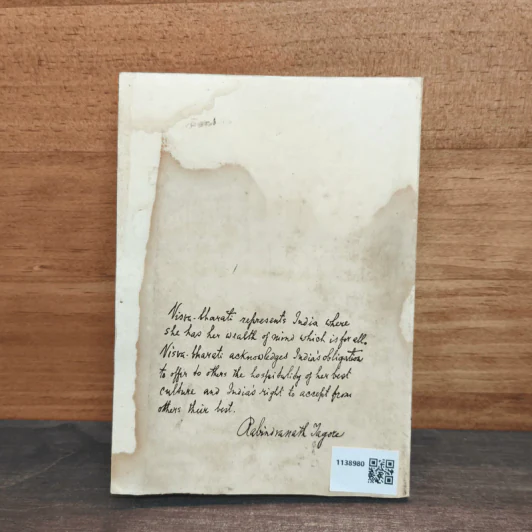 Visva-bharati represents India where
she has her wealth of mind which is for all.
Visva-bharati acknowledges India's obligation
to offer to others the hospitality of her best
culture and India's right to accept from
others their best.
Rabindranath Tagore
1138980